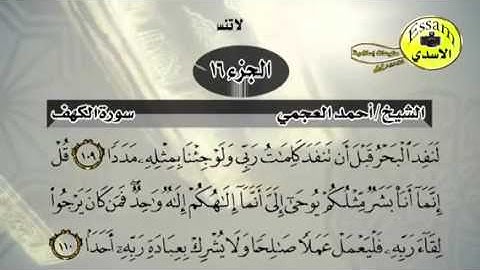 لا تنسا
Essam
الأسدي
الجزء ١٦
الشيخ/أحمد العجمي
سورة الكهف
لَنَفِدَ الْبَحْرُ قَبْلَ أَن تَنفَدَ كَلِمَٰتُ رَبِّي وَلَوْ جِئْنَا بِمِثْلِهِۦ مَدَدًا ١٠٩ قُلْ
إِنَّمَآ أَنَا۠ بَشَرٌ مِّثْلُكُمْ يُوحَىٰٓ إِلَىَّ أَنَّمَآ إِلَٰهُكُمْ إِلَٰهٌ وَٰحِدٌ ۖ فَمَن كَانَ يَرْجُوا۟
لِقَآءَ رَبِّهِۦ فَلْيَعْمَلْ عَمَلًا صَٰلِحًا وَلَا يُشْرِكْ بِعِبَادَةِ رَبِّهِۦٓ أَحَدًۢا ١١٠